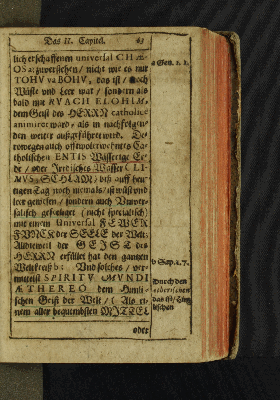 Das II. Capitel. 43
lich erschaffenen universal CHÆ-
OS a: zuverstehen / nicht wie es nur
TOHU va BOHU, das ist / noch
Wüst und Leer war / sondern als
bald mit RUACH ELOHIM,
dem Geist des HERRN catholicè
animiret ward, als in nachfolgen-
den weiter außgeführet wird. De-
rowegen auch offtwolerwentes Ca-
tholischen ENTIS Wässerige Er-
de / oder Irrdisches Wasser (LI-
MUS, SCHLAM) biß auff heu-
tigen Tag noch niemals / ist wüst und
leer gewesen / sondern auch Univer-
salisch geseeliget (nicht specialisch)
mit einem Universal FEWER
FUNCK der SEELE der Welt:
Alldieweil der GEIST des
HERRN erfüllet hat den gantzen
Weltkreiß b: Und solches / ver-
mittelst SPIRITU MUNDI
ÆTHEREO dem Himli-
schen Geist der Welt / (Als ei-
nem aller bequembsten MITTEL
oder
a Gen. 1. 1.
b Sap. 1. 7.
Durch den
das ist /
lischen